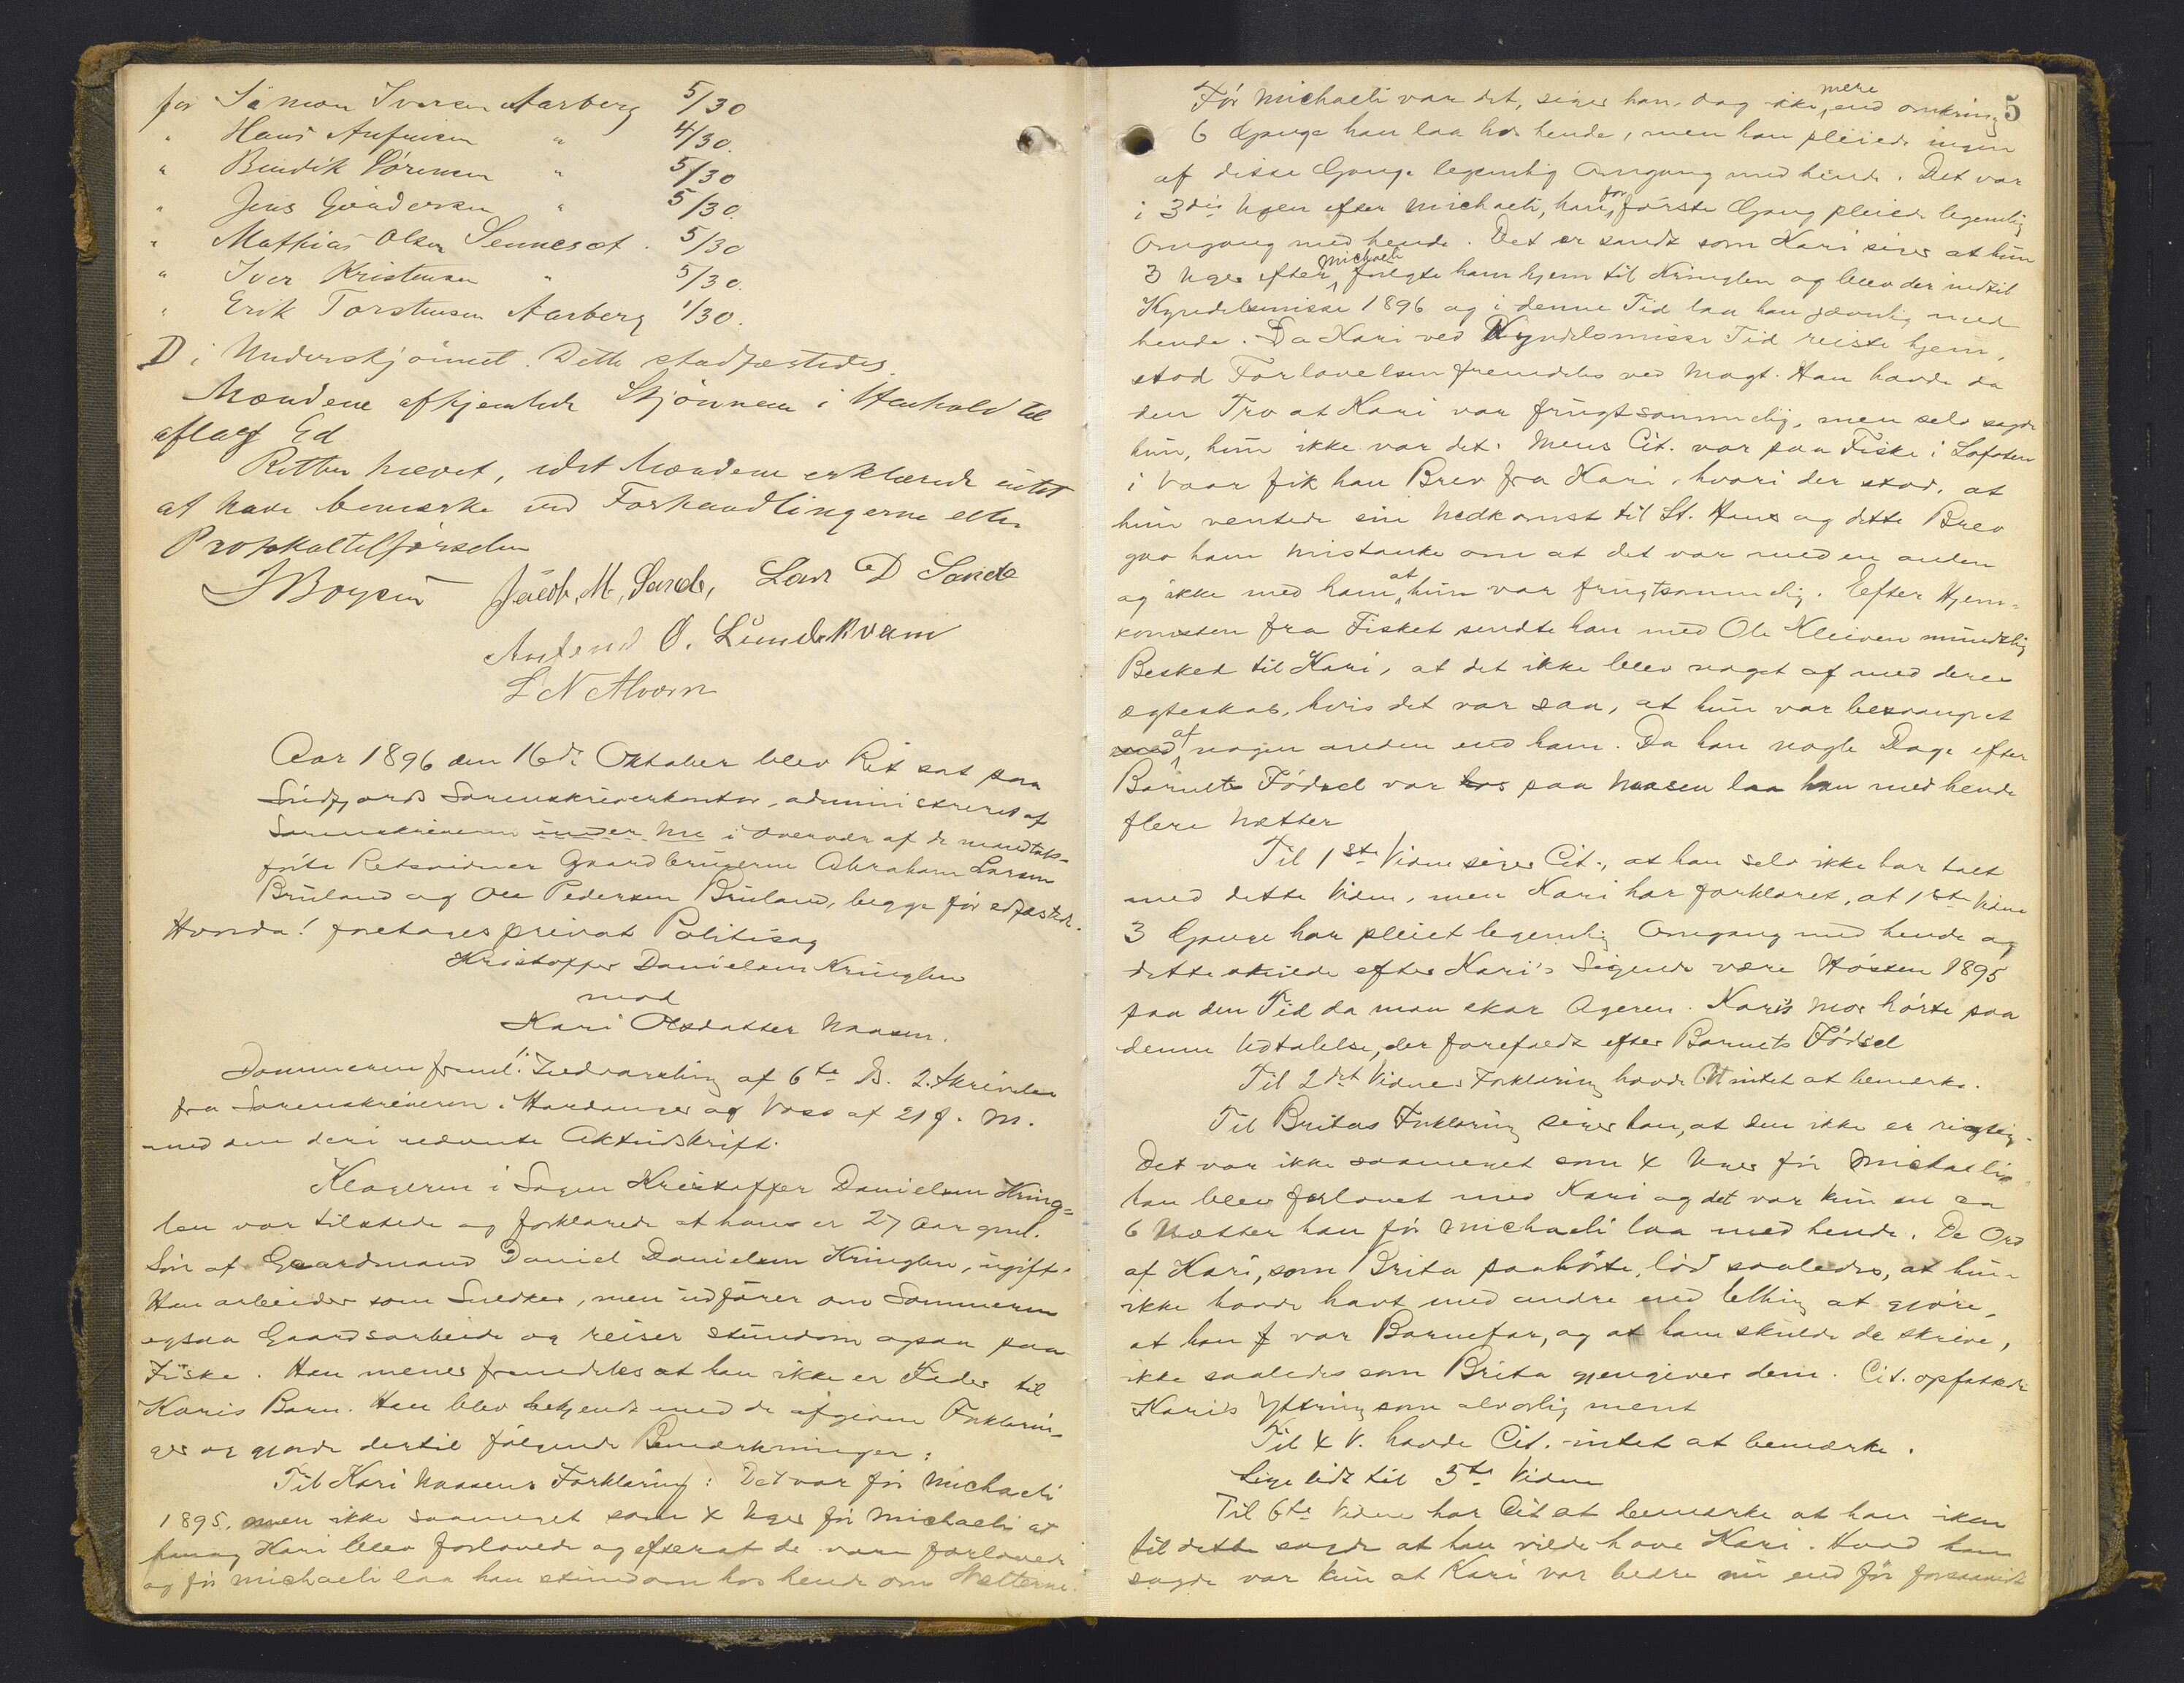 for Simon Iversen Aarberg 5/30
" Hans Anfinsen " 4/30.
" Bendik Sörensen " 5/30
" Jens Gundersen " 5/30.
" Mathias Olsen Senneset . 5/30
" Iver Kristensen " 5/30.
" Erik Torstensen Aarberg 1/30.
D i Underskjönnet. Dette stadfæstedes.
Mændene afhjemlede Skjönnene i Henhold til
aflagt Ed
Retten hævet, idet Mændene erklærede intet
at have bemærke ved Forhandlingerne eller
Protokoltilförselen
J Boysen Jacob, M, Sande, Lars D Sande
Anfend O. Lundekvam
L N Alvorn
Aar 1896 den 16de Oktober blev Ret sat paa
Söndfjords Sorenskriverkontor, administreret af
Sorenskriveren i Overvær af de mandtals-
förte Retsvidner Gaardbrugerne Abraham Larsen
Bruland og Ole Pedersen Bruland, begge för edfæstede.
Hvorda! foretages privat Politisag
Kristoffer Danielsen Kringlen
mod
Kari Olsdatter Naasen.
Dommeren freml: Indvarsling af 6te ds. 2. Skrivelse
fra Sorenskriveren i Hardanger og Voss af 21 f. M.
med den deri nævnte Aktudskrift.
Klageren i Sagen Kristoffer Danielsen Kring=
len var tilstede og forklarede at han er 27 Aar gml.
Sön af Gaardmand Daniel Danielsen Kringlen, ugift.
Han arbeider som Snedker, men udförer om Sommeren
ogsaa Gaardsarbeide og reiser stundom ogsaa paa
Fiske. Han mener fremdeles at han ikke er Fader til
Karis Barn. Han blev bekjendt med de afgivne Forklarin-
ger og gjorde dertil fölgende Bemærkninger:
Til Kari Naasens Forklaring: Det var för Michaeli
1895, men ikke saameget som 4 Uger för Michaeli at
han og Kari blev forlovede og efterat de vare forlovede
og för Michaeli laa han stundom hos hende om Nætterne.
5
För Michaeli var det, siger han dog ikke mere end omkring
6 Gange han laa hos hende, men han pleiede ingen
af disse Gange legemlig Omgang med hende. Det var
i 3die Ugen efter Michaeli, han for förste Gang pleiede legemlig
Omgang med hende. Det er sandt som Kari siger at hun
3 Uger efter Michaeli fulgte ham hjem til Kringlen og blev der indtil
Kyndelsmisse 1896 og i denne Tid laa han jævnlig med
hende. Da Kari ved Kyndelsmisse Tid reiste hjem,
stod Forlovelsen fremdeles ved Magt. Han havde da
den Tro at Kari var frugtsommelig, men selv sagde
hun, hun ikke var det. Mens Cit. var paa Fiske i Lofoten
i Vaar fik han Brev fra Kari, hvori der stod, at
hun ventede sin Nedkomst til St. Hans og dette Brev
gav ham Mistanke om at det var med en anden
og ikke med ham at hun var frugtsommelig. Efter Hjem=
komsten fra Fisket sendte han med Ole Kleiven mundtlig
Besked til Kari, at det ikke blev noget af med deres
Ægteskab, hvis det var saa, at hun var besvangret
med af nogen anden end ham. Da han nogle Dage efter
Barnets Födsel var hos paa Naasen laa han med hende
flere Nætter
Til 1ste Vidne siger Cit., at han selv ikke har talt
med dette Vidne, men Kari har forklaret, at 1ste Vidne
3 Gange har pleiet legemlig Omgang med hende og
dette skulde efter Kari's Sigende være Hösten 1895
paa den Tid da man skar Ageren. Karis Mor hörte paa
denne Udtalelse, der forefaldt efter Barnets Födsel
Til 2det Vidnes Forklaring havde Cit intet at bemærke.
Til Britas Forklaring siger han, at den ikke er rigtig.
Det var ikke saameget som 4 Uger för Michaelis
han blev forlovet med Kari og det var kun en ca
6 Nætter han för Michaeli laa med hende. De Ord
af Kari, som Brita paahörte, löd saaledes, at hun
ikke havde havt med andre end Cit at gjöre,
at han f var Barnefar, og at ham skulde de skrive,
ikke saaledes som Brita gjengiver dem. Cit. opfattede
Kari's Yttring som alvorlig ment
Til 4 V. havde Cit. intet at bemærke.
Lige lidt til 5te Vidne
Til 6te Vidne har Cit at bemærke at han ikke
til dette sagde at han vilde have Kari. Hvad han
sagde var kun at Kari var bedre nu end för forsaavidt